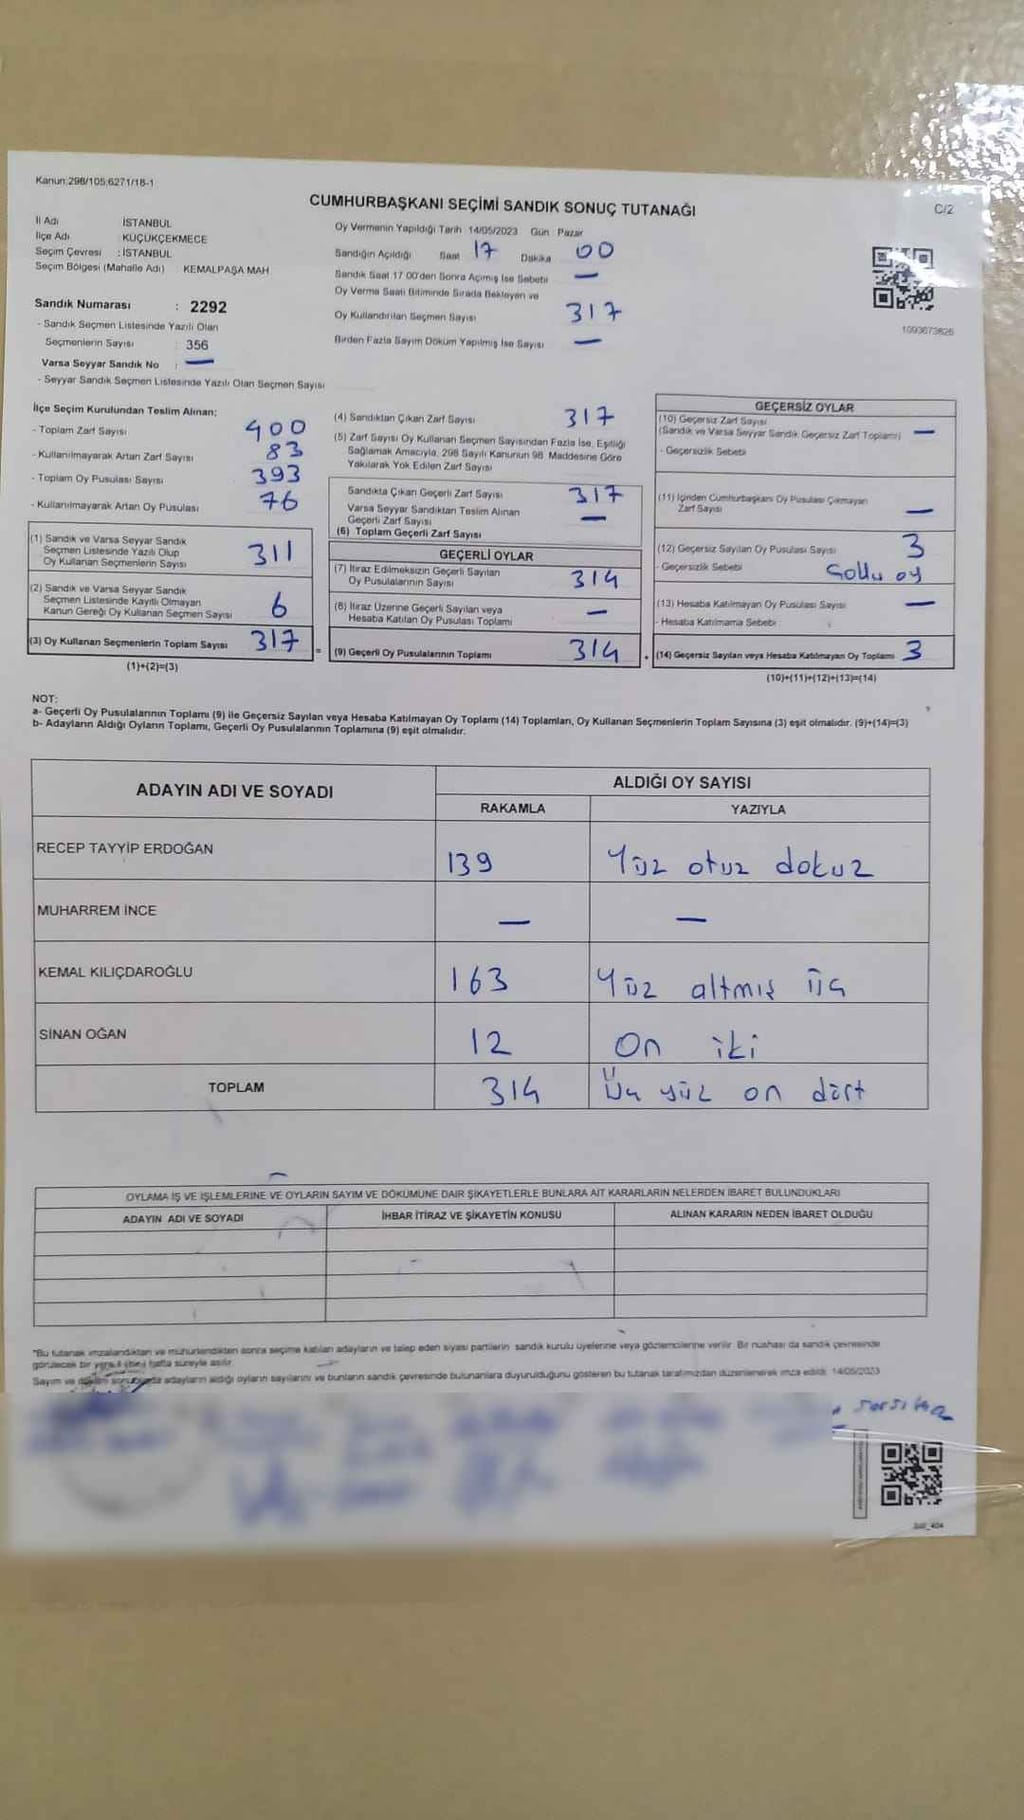 Kanun:298/105;6271/18-1
CUMHURBAŞKANI SEÇİMİ SANDIK SONUÇ TUTANAĞI
C/2
İl Adı İSTANBUL
İlçe Adı : KÜÇÜKÇEKMECE
Seçim Çevresi : İSTANBUL
Seçim Bölgesi (Mahalle Adı) KEMALPAŞA MAH
Sandık Numarası : 2292
- Sandık Seçmen Listesinde Yazılı Olan
Seçmenlerin Sayısı : 356
Varsa Seyyar Sandık No : —
- Seyyar Sandık Seçmen Listesinde Yazılı Olan Seçmen Sayısı
Oy Vermenin Yapıldığı Tarih 14/05/2023 Gün Pazar
Sandığın Açıldığı Saat 17 Dakika 00
Sandık Saat 17 00'den Sonra Açımış İse Sebebi —
Oy Verme Saati Bitiminde Sırada Bekleyen ve
Oy Kullandırılan Seçmen Sayısı 317
Birden Fazla Sayım Döküm Yapılmış İse Sayısı —
1093673826
İlçe Seçim Kurulundan Teslim Alınan;
- Toplam Zarf Sayısı 400
- Kullanılmayarak Artan Zarf Sayısı 83
- Toplam Oy Pusulası Sayısı 393
- Kullanılmayarak Artan Oy Pusulası 76
(1) Sandık ve Varsa Seyyar Sandık
Seçmen Listesinde Yazılı Olup
Oy Kullanan Seçmenlerin Sayısı 311
(2) Sandık ve Varsa Seyyar Sandık
Seçmen Listesinde Kayıtlı Olmayan
Kanun Gereği Oy Kullanan Seçmen Sayısı 6
(3) Oy Kullanan Seçmenlerin Toplam Sayısı 317
(1)+(2)=(3)
(4) Sandıktan Çıkan Zarf Sayısı 317
(5) Zarf Sayısı Oy Kullanan Seçmen Sayısından Fazla İse, Eşitliği
Sağlamak Amacıyla, 298 Sayılı Kanunun 98. Maddesine Göre
Yakılarak Yok Edilen Zarf Sayısı
Sandıkta Çıkan Geçerli Zarf Sayısı 317
Varsa Seyyar Sandıktan Teslim Alınan
Geçerli Zarf Sayısı —
(6) Toplam Geçerli Zarf Sayısı
GEÇERLİ OYLAR
(7) İtiraz Edilmeksizin Geçerli Sayılan
Oy Pusulalarının Sayısı 314
(8) İtiraz Üzerine Geçerli Sayılan veya
Hesaba Katılan Oy Pusulası Toplamı —
(9) Geçerli Oy Pusulalarının Toplamı 314
GEÇERSİZ OYLAR
(10) Geçersiz Zarf Sayısı
(Sandık ve Varsa Seyyar Sandık Geçersiz Zarf Toplamı) —
- Geçersizlik Sebebi
(11) İçinden Cumhurbaşkanı Oy Pusulası Çıkmayan
Zarf Sayısı —
(12) Geçersiz Sayılan Oy Pusulası Sayısı 3
- Geçersizlik Sebebi oy
(13) Hesaba Katılmayan Oy Pusulası Sayısı —
- Hesaba Katılmama Sebebi :
(14) Geçersiz Sayılan veya Hesaba Katılmayan Oy Toplamı 3
(10)+(11)+(12)+(13)=(14)
NOT:
a- Geçerli Oy Pusulalarının Toplamı (9) ile Geçersiz Sayılan veya Hesaba Katılmayan Oy Toplamı (14) Toplamları, Oy Kullanan Seçmenlerin Toplam Sayısına (3) eşit olmalıdır. (9)+(14)=(3)
b- Adayların Aldığı Oyların Toplamı, Geçerli Oy Pusulalarının Toplamına (9) eşit olmalıdır.
ADAYIN ADI VE SOYADI
ALDIĞI OY SAYISI
RAKAMLA YAZIYLA
RECEP TAYYİP ERDOĞAN 139 Yüz otuz dokuz
MUHARREM İNCE — —
KEMAL KILIÇDAROĞLU 163 Yüz altmış üç
SİNAN OĞAN 12 On iki
TOPLAM 314 Üç yüz on dört
OYLAMA İŞ VE İŞLEMLERİNE VE OYLARIN SAYIM VE DÖKÜMÜNE DAİR ŞİKAYETLERLE BUNLARA AİT KARARLARIN NELERDEN İBARET BULUNDUKLARI
ADAYIN ADI VE SOYADI İHBAR İTİRAZ VE ŞİKAYETİN KONUSU ALINAN KARARIN NEDEN İBARET OLDUĞU
"Bu tutanak imzalandıktan ve mühürlendikten sonra seçime katılan adayların ve talep eden siyasi partilerin sandık kurulu üyelerine veya gözlemcilerine verilir. Bir nüshası da sandık çevresinde
görülecek bir yere (bir) hafta süreyle asılır.
Sayım ve döküm sonucunda adayların aldığı oyların sayılarını ve bunların sandık çevresinde bulunanlara duyurulduğunu gösteren bu tutanak tarafımızdan düzenlenerek imza edildi. 14/05/2023